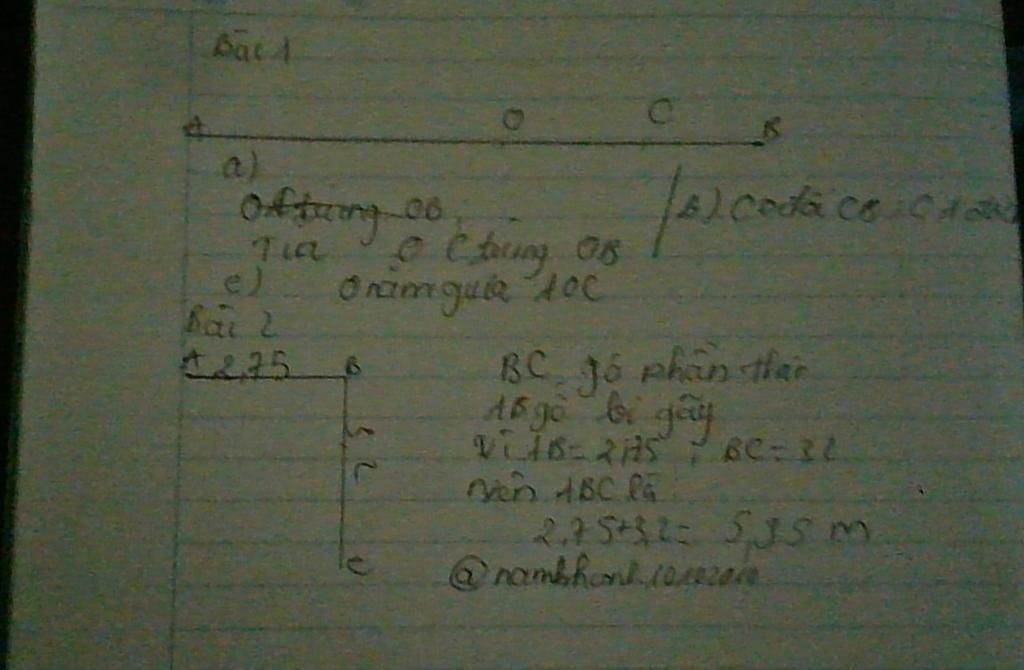 Bài 1
A O C B
a)
OA trùng OB
Tia OC trùng OB
B) C CB C A
c) O nằm giữa AOC
Bài 2
A 2,75 B
C
BC gỗ phần thân
AB gỗ bị gãy
Vì AB = 2,75, BC = 3,2
nên ABC là
2,75+3,2= 5,95 m